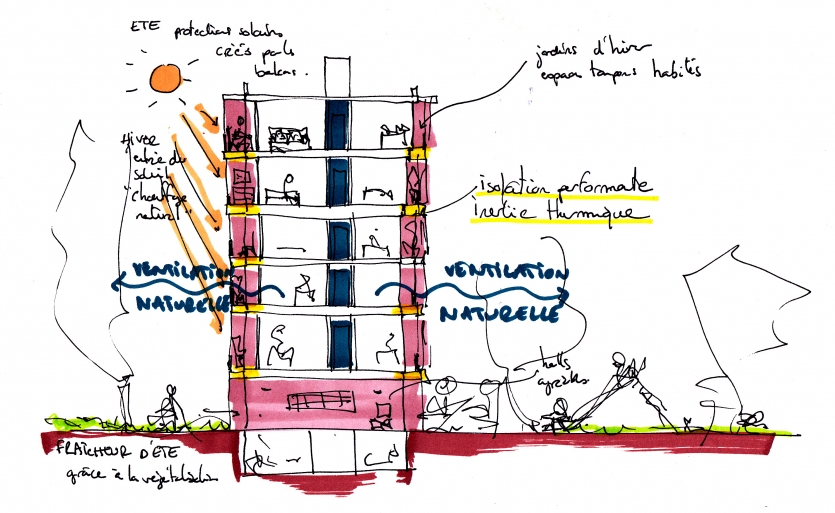 ETE protections solaires
créés par les
balcons.
jardins d'hiver
espaces tampons habités
Hiver
entrée du
soleil
"chauffage
naturel"
isolation performante
inertie thermique
VENTILATION
NATURELLE
VENTILATION
NATURELLE
halls
agréables
FRAÎCHEUR D'ÉTÉ
grâce à la végétalisation